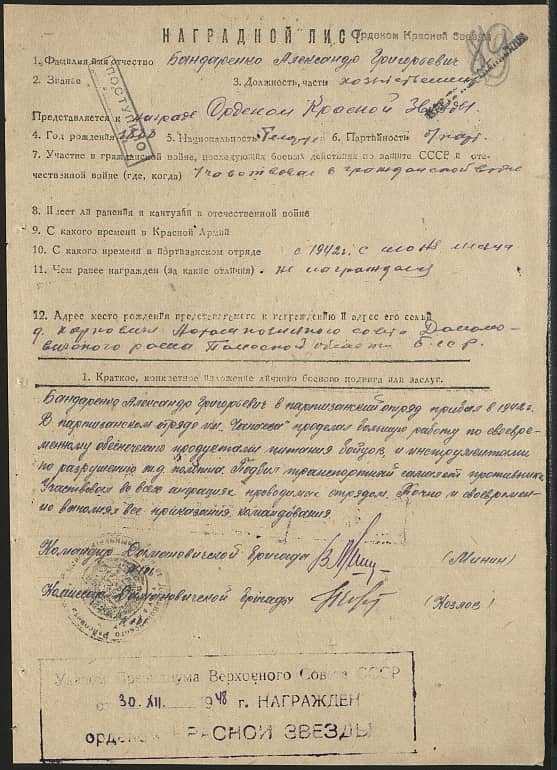 НАГРАДНОЙ ЛИСТ Орденом Красной Звезды
1. Фамилия имя отчество Бандаренко Александр Григорьевич
2. Звание 3. Должность, часть хозяйственник
ПОСТУПИЛО
Представляется к награде Орденом Красной Звезды.
4. Год рождения 5. Национальность 6. Партийность б/парт.
7. Участие в гражданской войне, последующих боевых действиях по защите СССР и оте-
чественной войне (где, когда) Участвовал в гражданской войне
8. Имеет ли ранения и кантузии в отечественной войне
9. С какого времени в Красной Армии
10. С какого времени в партизанском отряде с 1942г. с месяца
11. Чем ранее награжден (за какие отличия). Не награждался
12. Адрес место рождения представляемого к награждению и адрес его семьи
д. совета Домано-
вичского района Полесской области Б.С.С.Р.
1. Краткое, конкретное изложение личного боевого подвига или заслуг.
Бандаренко Александр Григорьевич в партизанский отряд прибыл в 1942г.
В партизанском отряде им. Чапаева проделал большую работу по своевре-
менному обеспечению продуктами питания бойцов, и инструментами
по разрушению ж.д. полотна. Подбил транспортный самолет противника.
Участвовал во всех операциях проводимых отрядом. Точно и своевремен-
но выполнял все приказания командования
Командир Домановичской бригады (Минин)
Комиссар Домановичской бригады (Козлов)
Указом Президиума Верховного Совета СССР
от 30.XII. 1948 г. НАГРАЖДЕН
орденом КРАСНОЙ ЗВЕЗДЫ